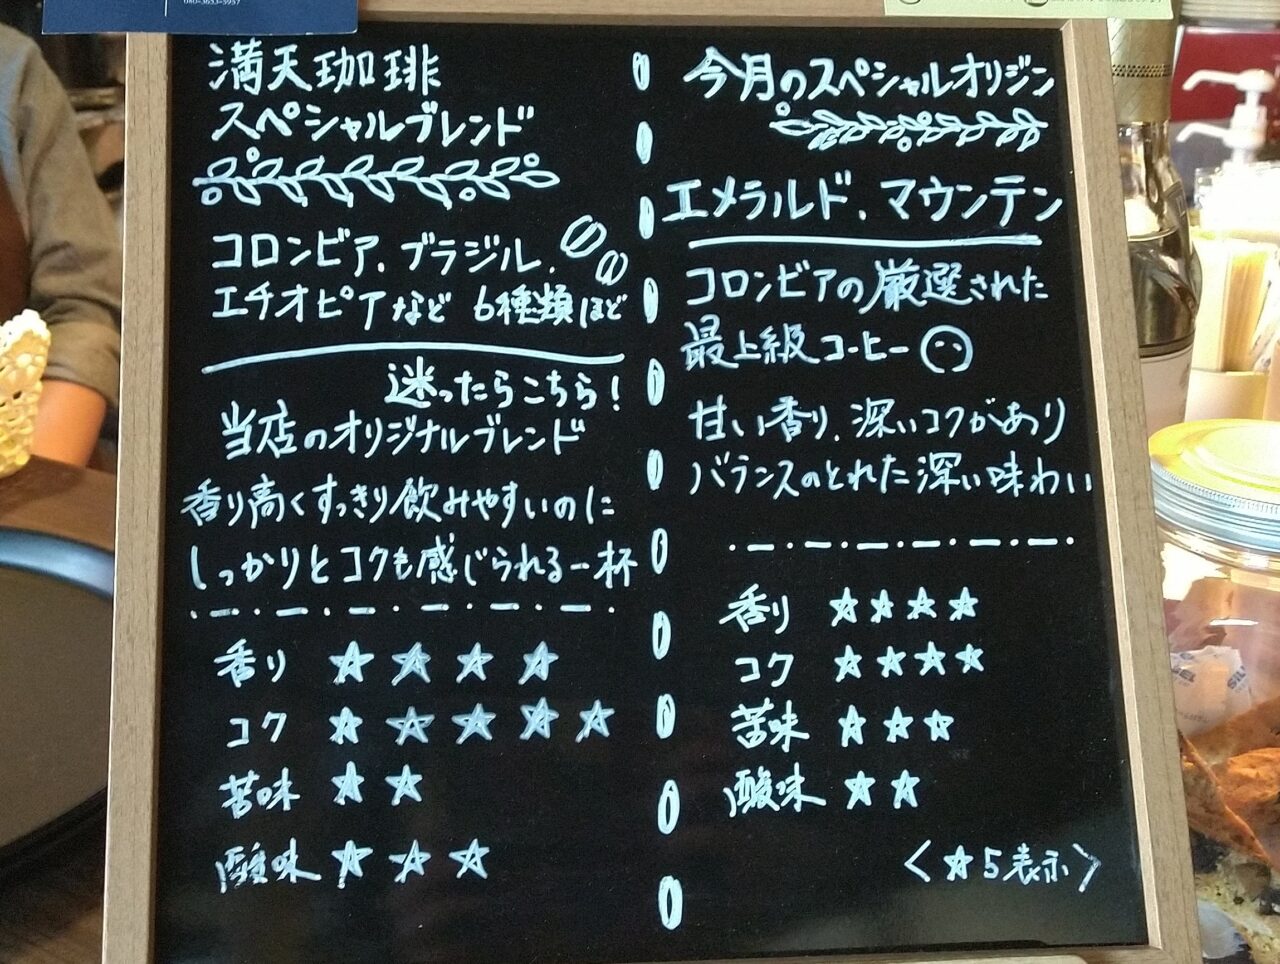 満天珈琲
スペシャルブレンド
コロンビア、ブラジル、
エチオピアなど 6種類ほど
迷ったらこちら!
当店のオリジナルブレンド
香り高くすっきり飲みやすいのに
しっかりとコクも感じられる一杯
香り ★★★★
コク ★★★★★
苦味 ★★
酸味 ★★★
今月のスペシャルオリジン
エメラルド、マウンテン
コロンビアの厳選された
最上級コーヒー
甘い香り、深いコクがあり
バランスのとれた深い味わい
香り ★★★★
コク ★★★★
苦味 ★★★
酸味 ★★
〈★5表示〉